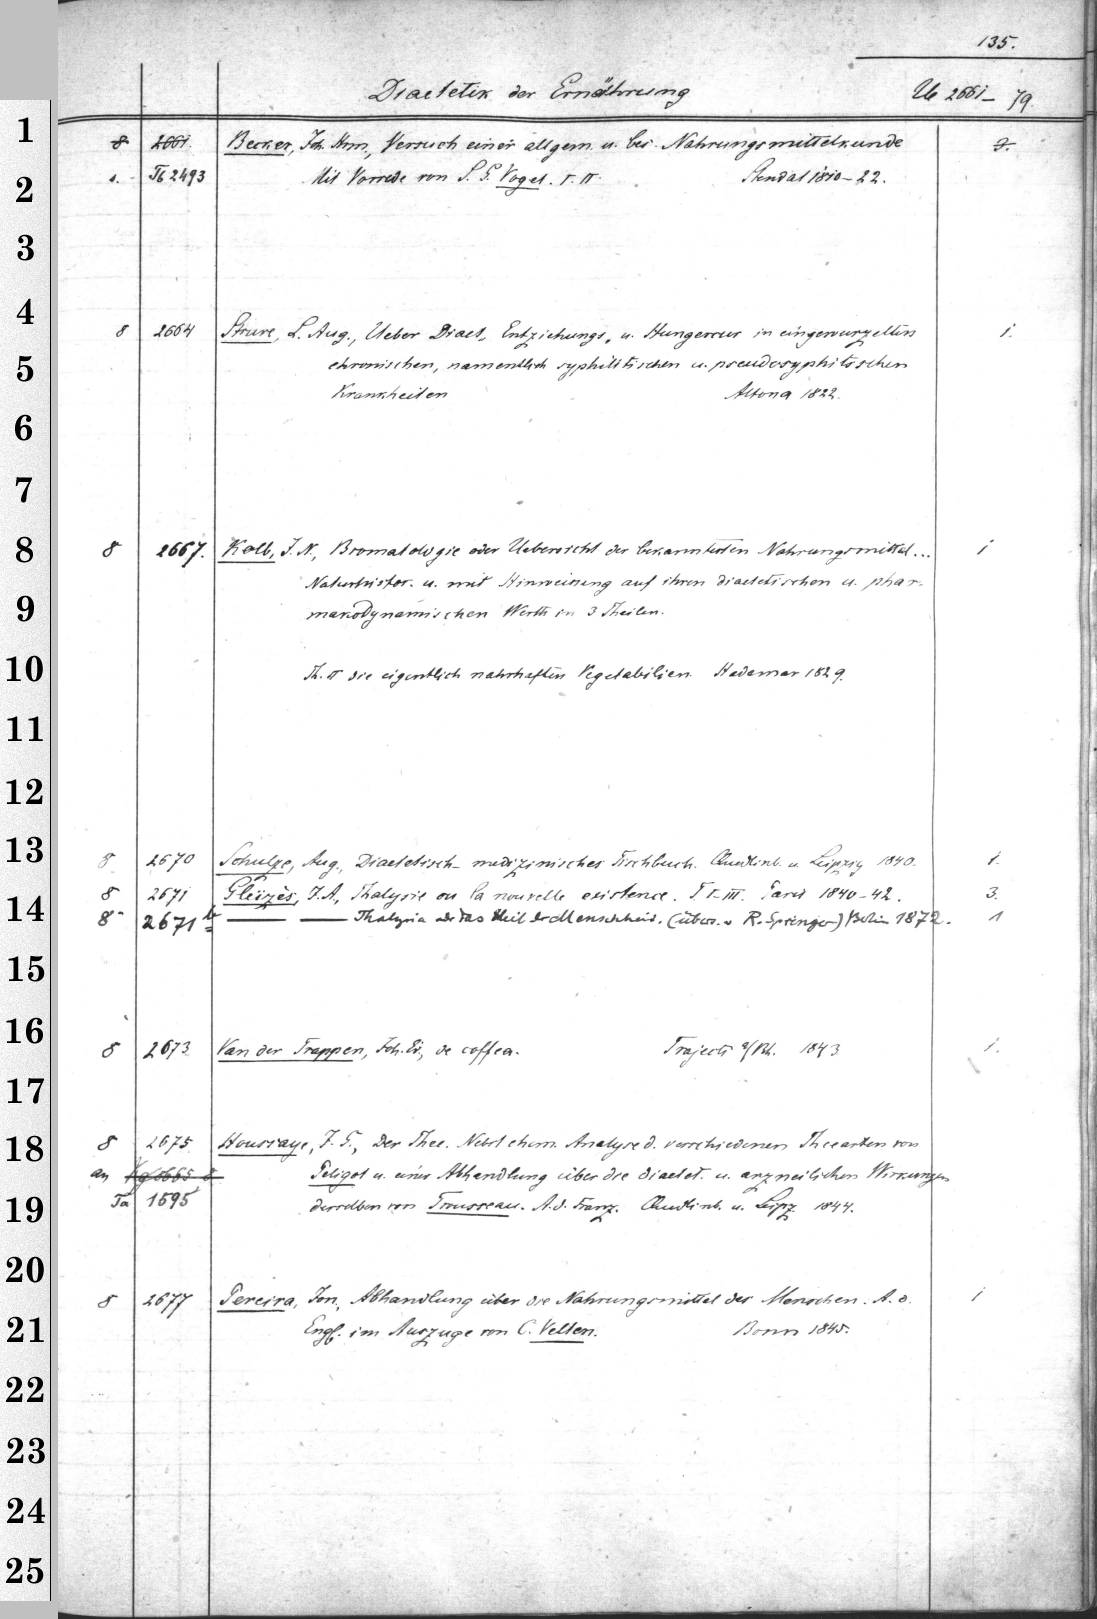 135.
Diaetetik der Ernährung Ub 2661 – 79
1
8 2661. Becker, Joh. Hrm., Versuch einer allgem. u. bes. Nahrungsmittelkunde 2.
2
s. Tb 2493 Mit Vorrede von S. G. Vogel. T. II. Stendal 1810–22.
3
4
8 2664 Struve, L. Aug., Ueber Diaet, Entziehungs, u. Hungercur in eingewurzelten 1.
5
chronischen, namentlich syphilitischen u. pseudosyphilitischen
Krankheiten Altona 1822.
6
7
8
8 2667. Kolb, J. N., Bromatologie oder Uebersicht der bekanntesten Nahrungsmittel... 1
Naturhistor. u. mit Hinweisung auf ihren diaetetischen u. phar-
9
makodynamischen Werth in 3 Theilen.
10
Th. II die eigentlich nahrhaften Vegetabilien. Hadamar 1829.
11
12
13
8 2670 Schulze, Aug., Diaetetisch-medizinisches Tischbuch. Quedlinb. u. Leipzig 1840. 1.
8 2671 Gleïzès, J. A., Thalysie ou la nouvelle existence. T. I–III. Paris 1840–42. 3.
14
8 2671 b — — Thalysia od. das Heil der Menschheit. (übers. v R. Springer) Berlin 1872. 1
15
16
8 2673 Van der Trappen, Joh. Er., de coffea. Trajecti a/Rh. 1843 1.
17
18
8 2675 Houssaye, J. G., Der Thee. Nebst chem. Analyse d. verschiedenen Theearten von
an Vg 5665 8 Peligot u. einer Abhandlung über die diaetet. u. arzneilichen Wirkungen
19
Ta 1595 derselben von Trousseau. A. d. Franz. Quedlinb. u. Leipz 1844.
20
8 2677 Pereira, Jon., Abhandlung über die Nahrungsmittel des Menschen. A. d. 1
21
Engl. im Auszuge von C. Velten. Bonn 1845.
22
23
24
25